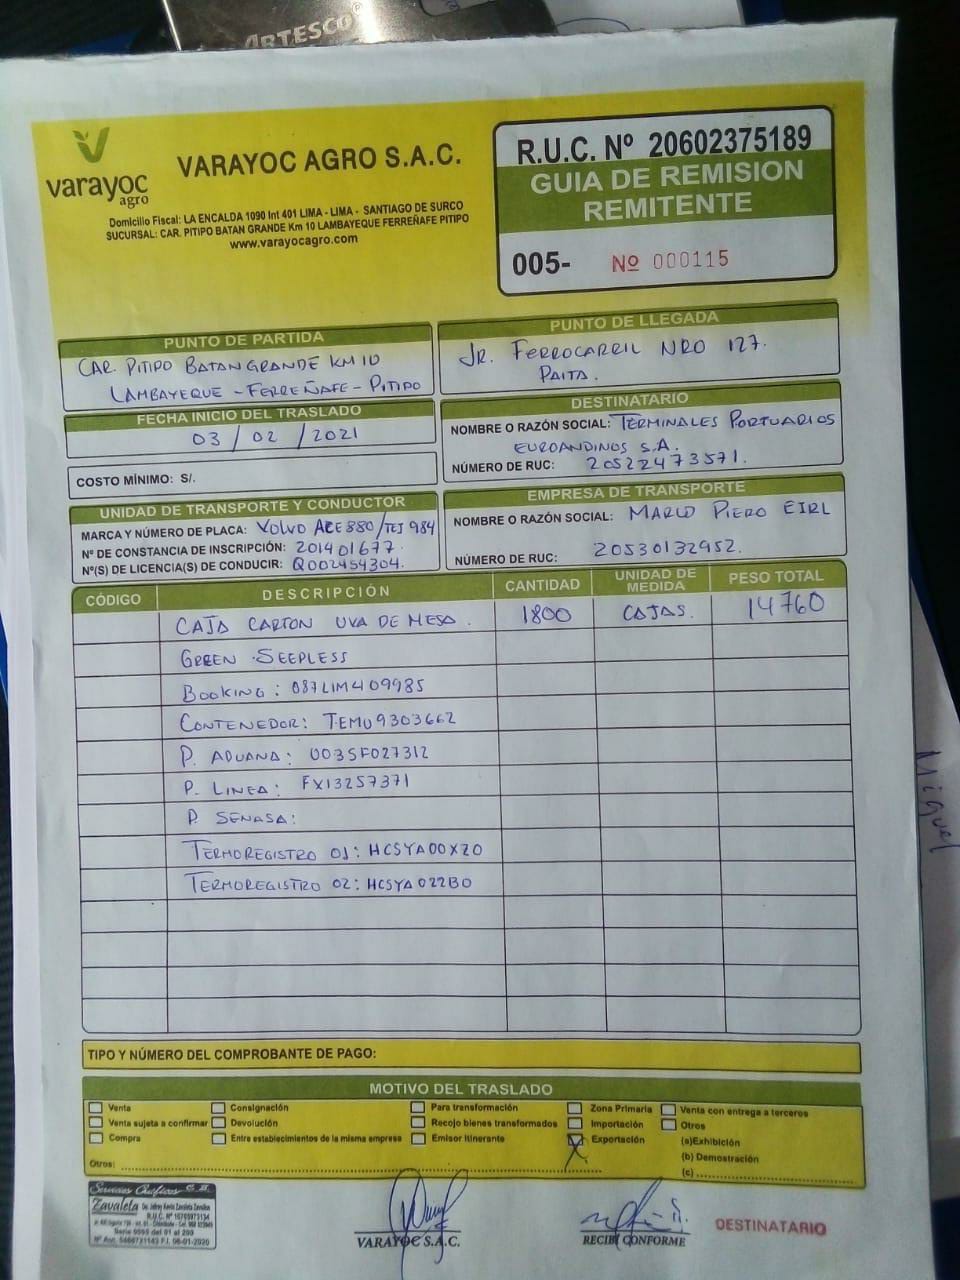 ARTESCO
varayoc
agro
VARAYOC AGRO S.A.C.
Domicilio Fiscal: LA ENCALDA 1090 Int 401 LIMA - LIMA - SANTIAGO DE SURCO
SUCURSAL: CAR. PITIPO BATAN GRANDE Km 10 LAMBAYEQUE FERREÑAFE PITIPO
www.varayocagro.com
R.U.C. Nº 20602375189
GUIA DE REMISION
REMITENTE
005- Nº 000115
PUNTO DE PARTIDA
CAR. PITIPO BATANGRANDE KM 10
LAMBAYEQUE - FERREÑAFE - PITIPO
PUNTO DE LLEGADA
JR. FERROCARRIL NRO 127.
PAITA.
FECHA INICIO DEL TRASLADO
03 / 02 / 2021
COSTO MÍNIMO: S/.
DESTINATARIO
NOMBRE O RAZÓN SOCIAL: TERMINALES PORTUARIOS
EUROANDINOS S.A.
NÚMERO DE RUC: 20522473571.
UNIDAD DE TRANSPORTE Y CONDUCTOR
MARCA Y NÚMERO DE PLACA: VOLVO AZE880/TEJ984
Nº DE CONSTANCIA DE INSCRIPCIÓN: 201401677.
Nº(S) DE LICENCIA(S) DE CONDUCIR: Q002454304.
EMPRESA DE TRANSPORTE
NOMBRE O RAZÓN SOCIAL: MARCO PIERO EIRL
NÚMERO DE RUC: 20530132952.
CÓDIGO DESCRIPCIÓN CANTIDAD UNIDAD DE MEDIDA PESO TOTAL
CAJA CARTON UVA DE MESA. 1800 CAJAS. 14760
GREEN SEEPLESS
BOOKING: 087LIM409985
CONTENEDOR: TEMU9303662
P. ADUANA: 003SF027312
P. LINEA: FX13257371
P. SENASA:
TERMOREGISTRO 01: HCSYA00XZ0
TERMOREGISTRO 02: HCSYA022B0
TIPO Y NÚMERO DEL COMPROBANTE DE PAGO:
MOTIVO DEL TRASLADO
Venta Consignación Para transformación Zona Primaria Venta con entrega a terceros
Venta sujeta a confirmar Devolución Recojo bienes transformados Importación Otros
Compra Entre establecimientos de la misma empresa Emisor Itinerante X Exportación (a)Exhibición
(b) Demostración
Otros: (c)
Servicios Gráficos
Zavaleta
VARAYOC S.A.C.
RECIBI CONFORME
DESTINATARIO
Miguel